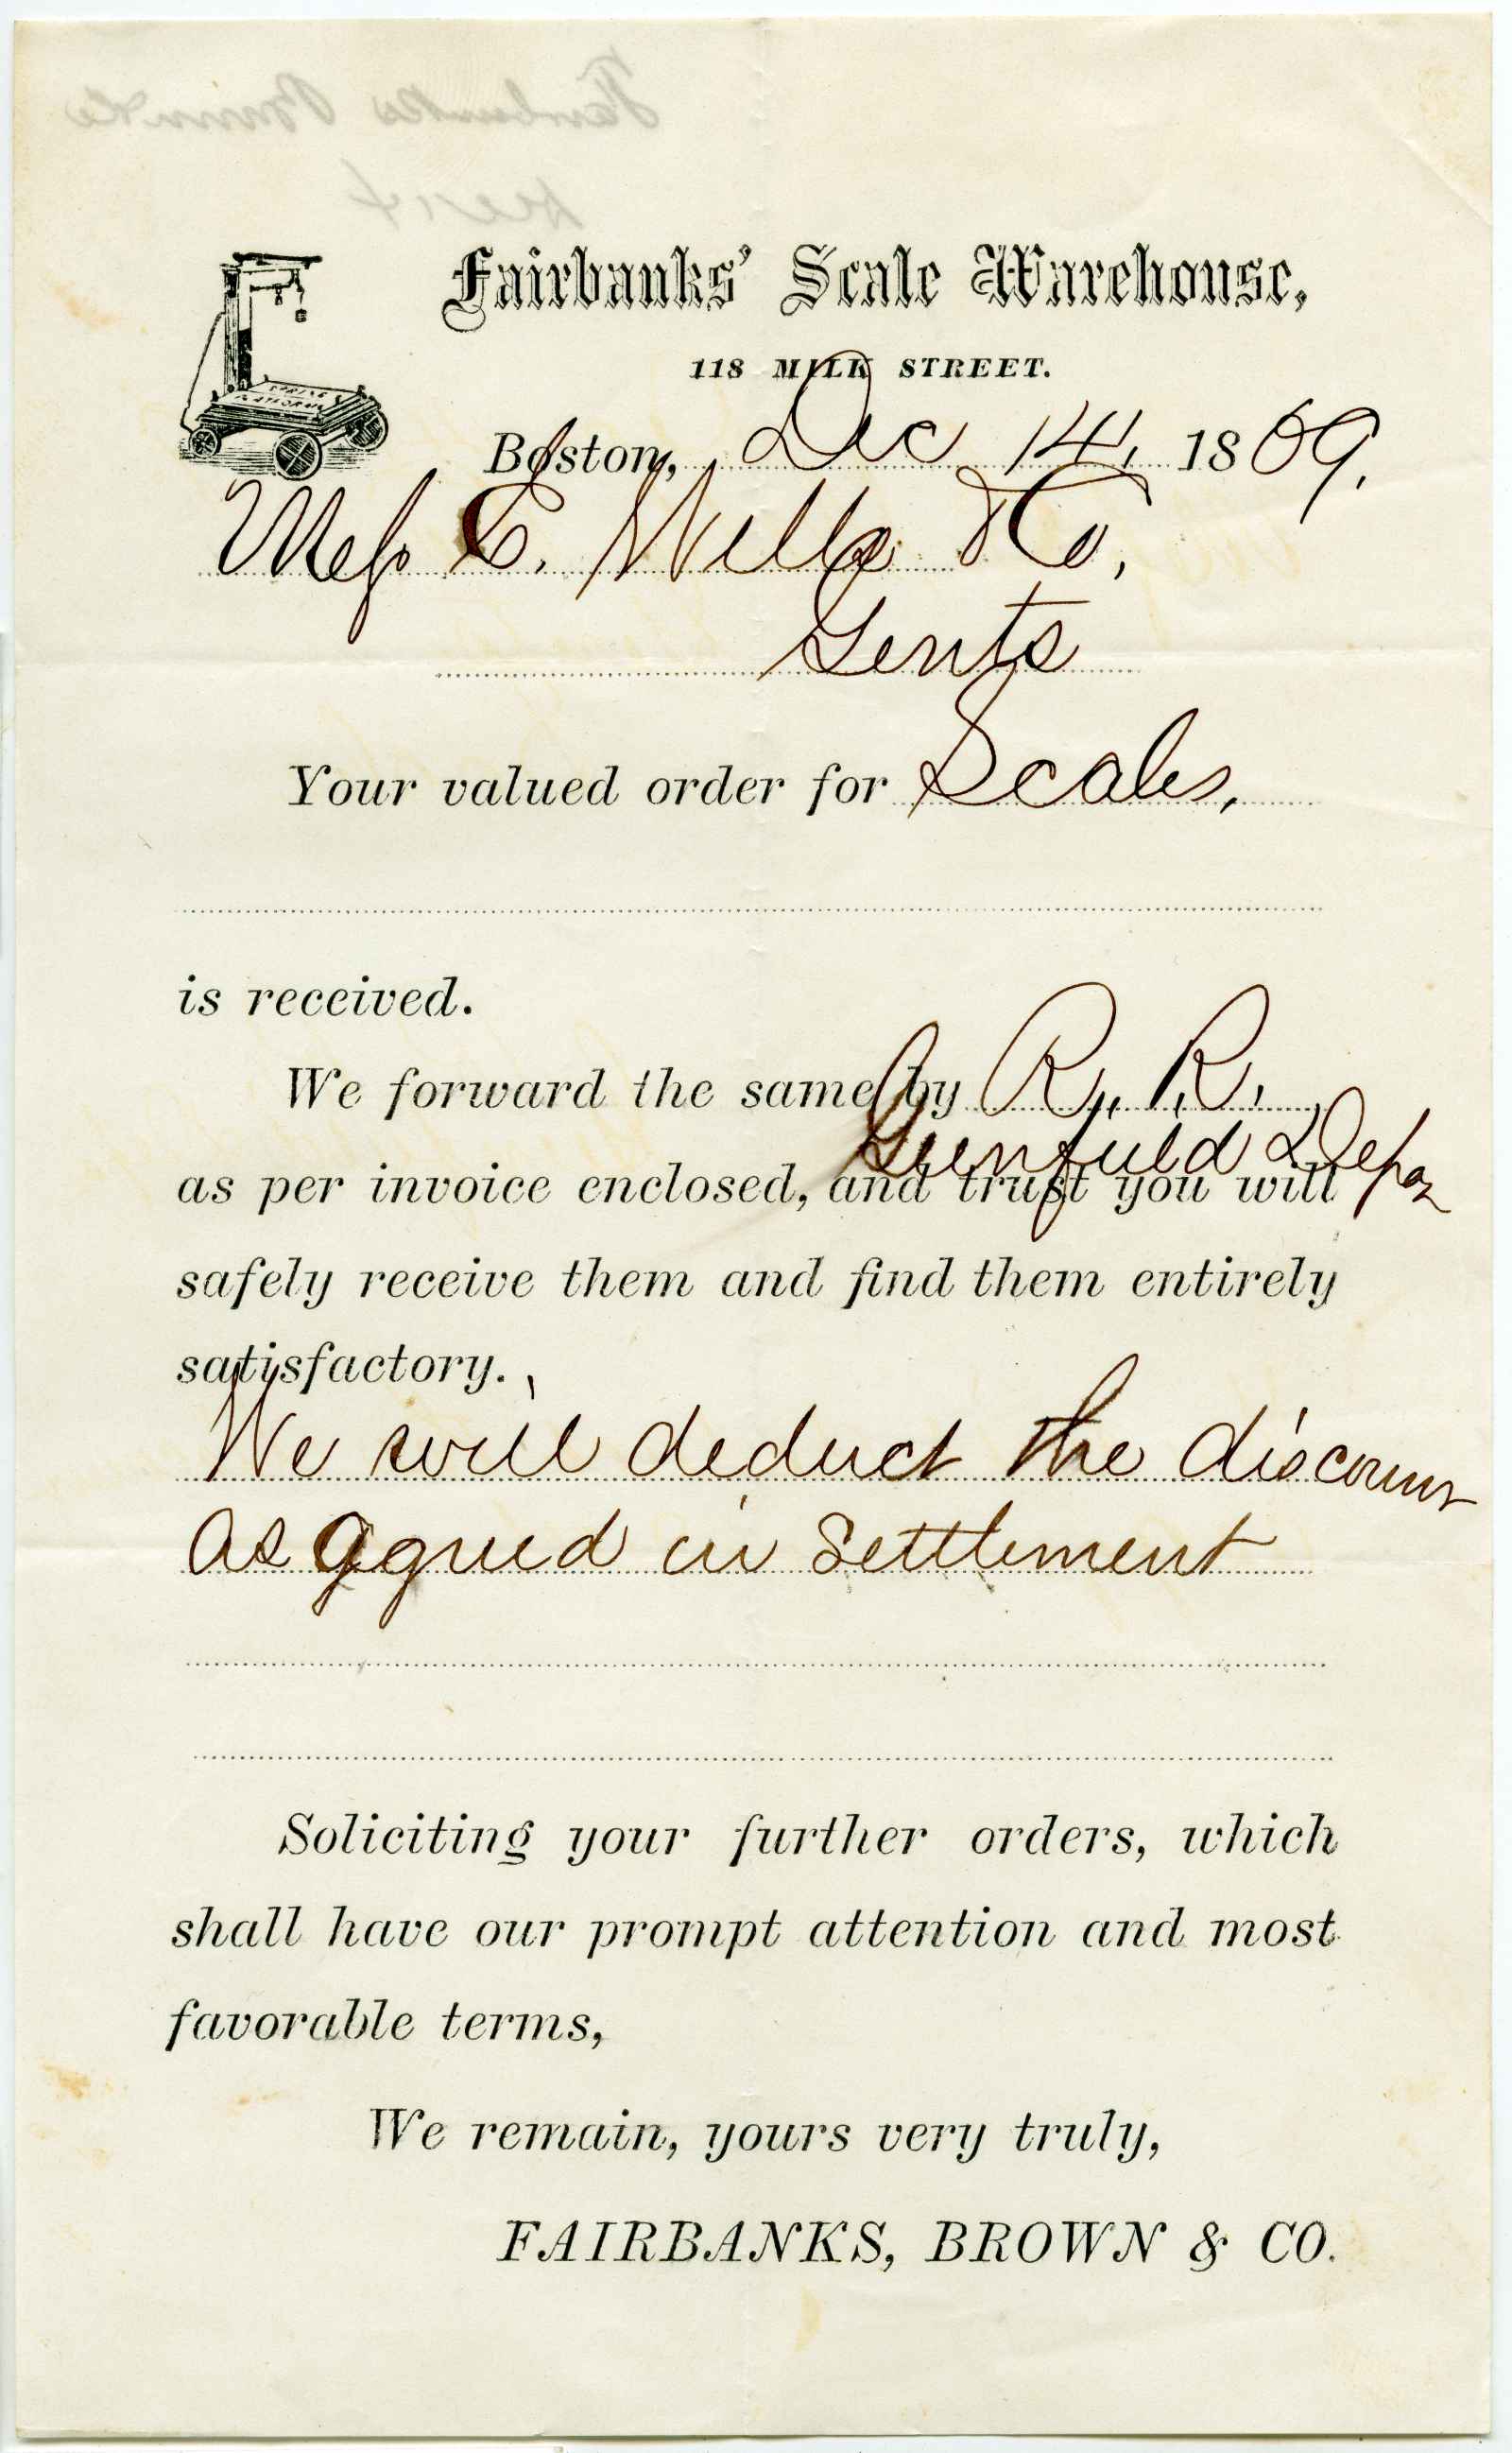 Fairbanks' Scale Warehouse,
118 MILK STREET.
Boston, Dec 14, 1869.
Mess C. Wells & Co,
Gents
Your valued order for Scales,
is received.
We forward the same by R. R.
Greenfield Depot
as per invoice enclosed, and trust you will
safely receive them and find them entirely
satisfactory.
We will deduct the discount
as agreed in Settlement
Soliciting your further orders, which
shall have our prompt attention and most
favorable terms,
We remain, yours very truly,
FAIRBANKS, BROWN & CO.